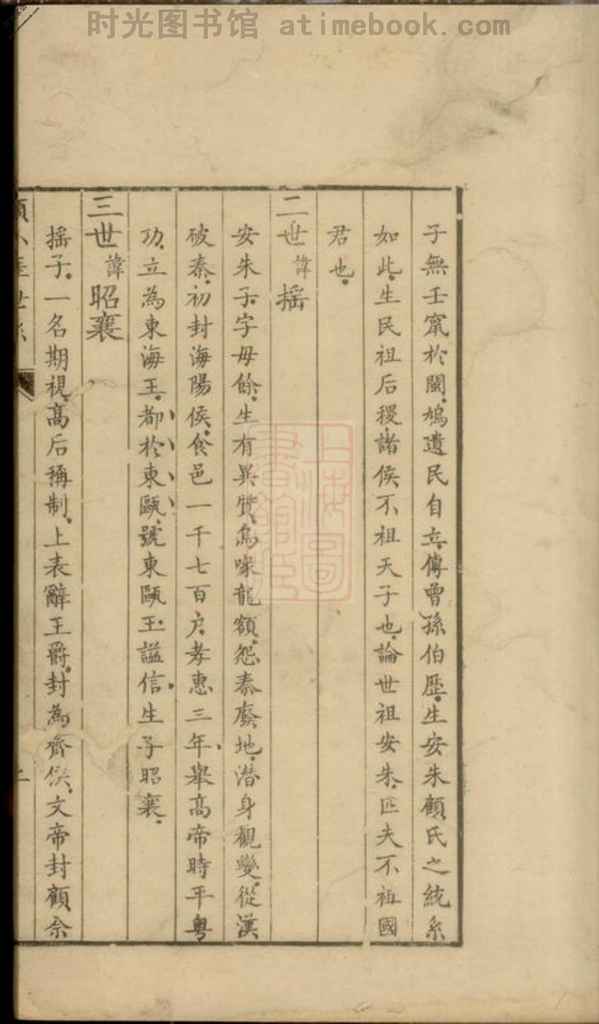 时光图书馆 atimebook.com
子無壬窜於閩鳩遺民自立傳曾孫伯歷生安朱顧氏之統系
如此生民祖后稷諸侯不祖天子也論世祖安朱匹夫不祖國
君也
二世諱摇
安朱子字毋餘生有異質烏喙龍顙怨秦廢地潜身觀變從漢
破秦初封海陽侯食邑一千七百户孝惠三年舉高帝時平粤
功立為東海王都於東甌號東甌王諡信生子昭襄
三世諱昭襄
摇子一名期視高后稱制上表辭王爵封為齊侯文帝封顧余